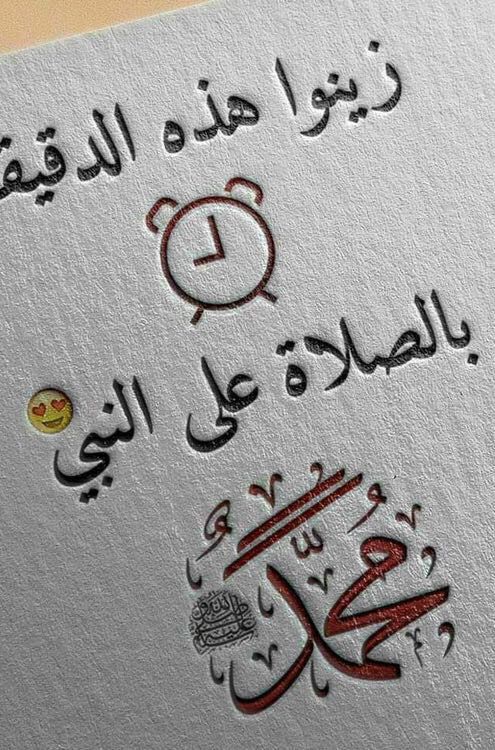 زينوا هذه الدقيقـ
بالصلاة على النبي
محمد
ﷺ